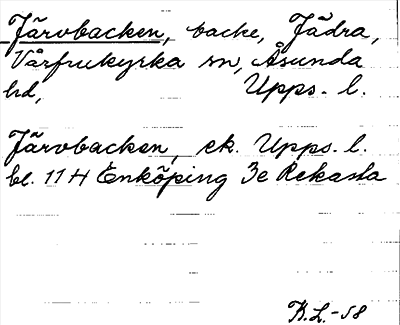 Järvbacken, backe, Jädra,
Vårfrukyrka sn, Åsunda
hd, Upps. l.
Järvbacken, ek. Upps. l.
bl. 11H Enköping 3e Rekasta
K.L.-58